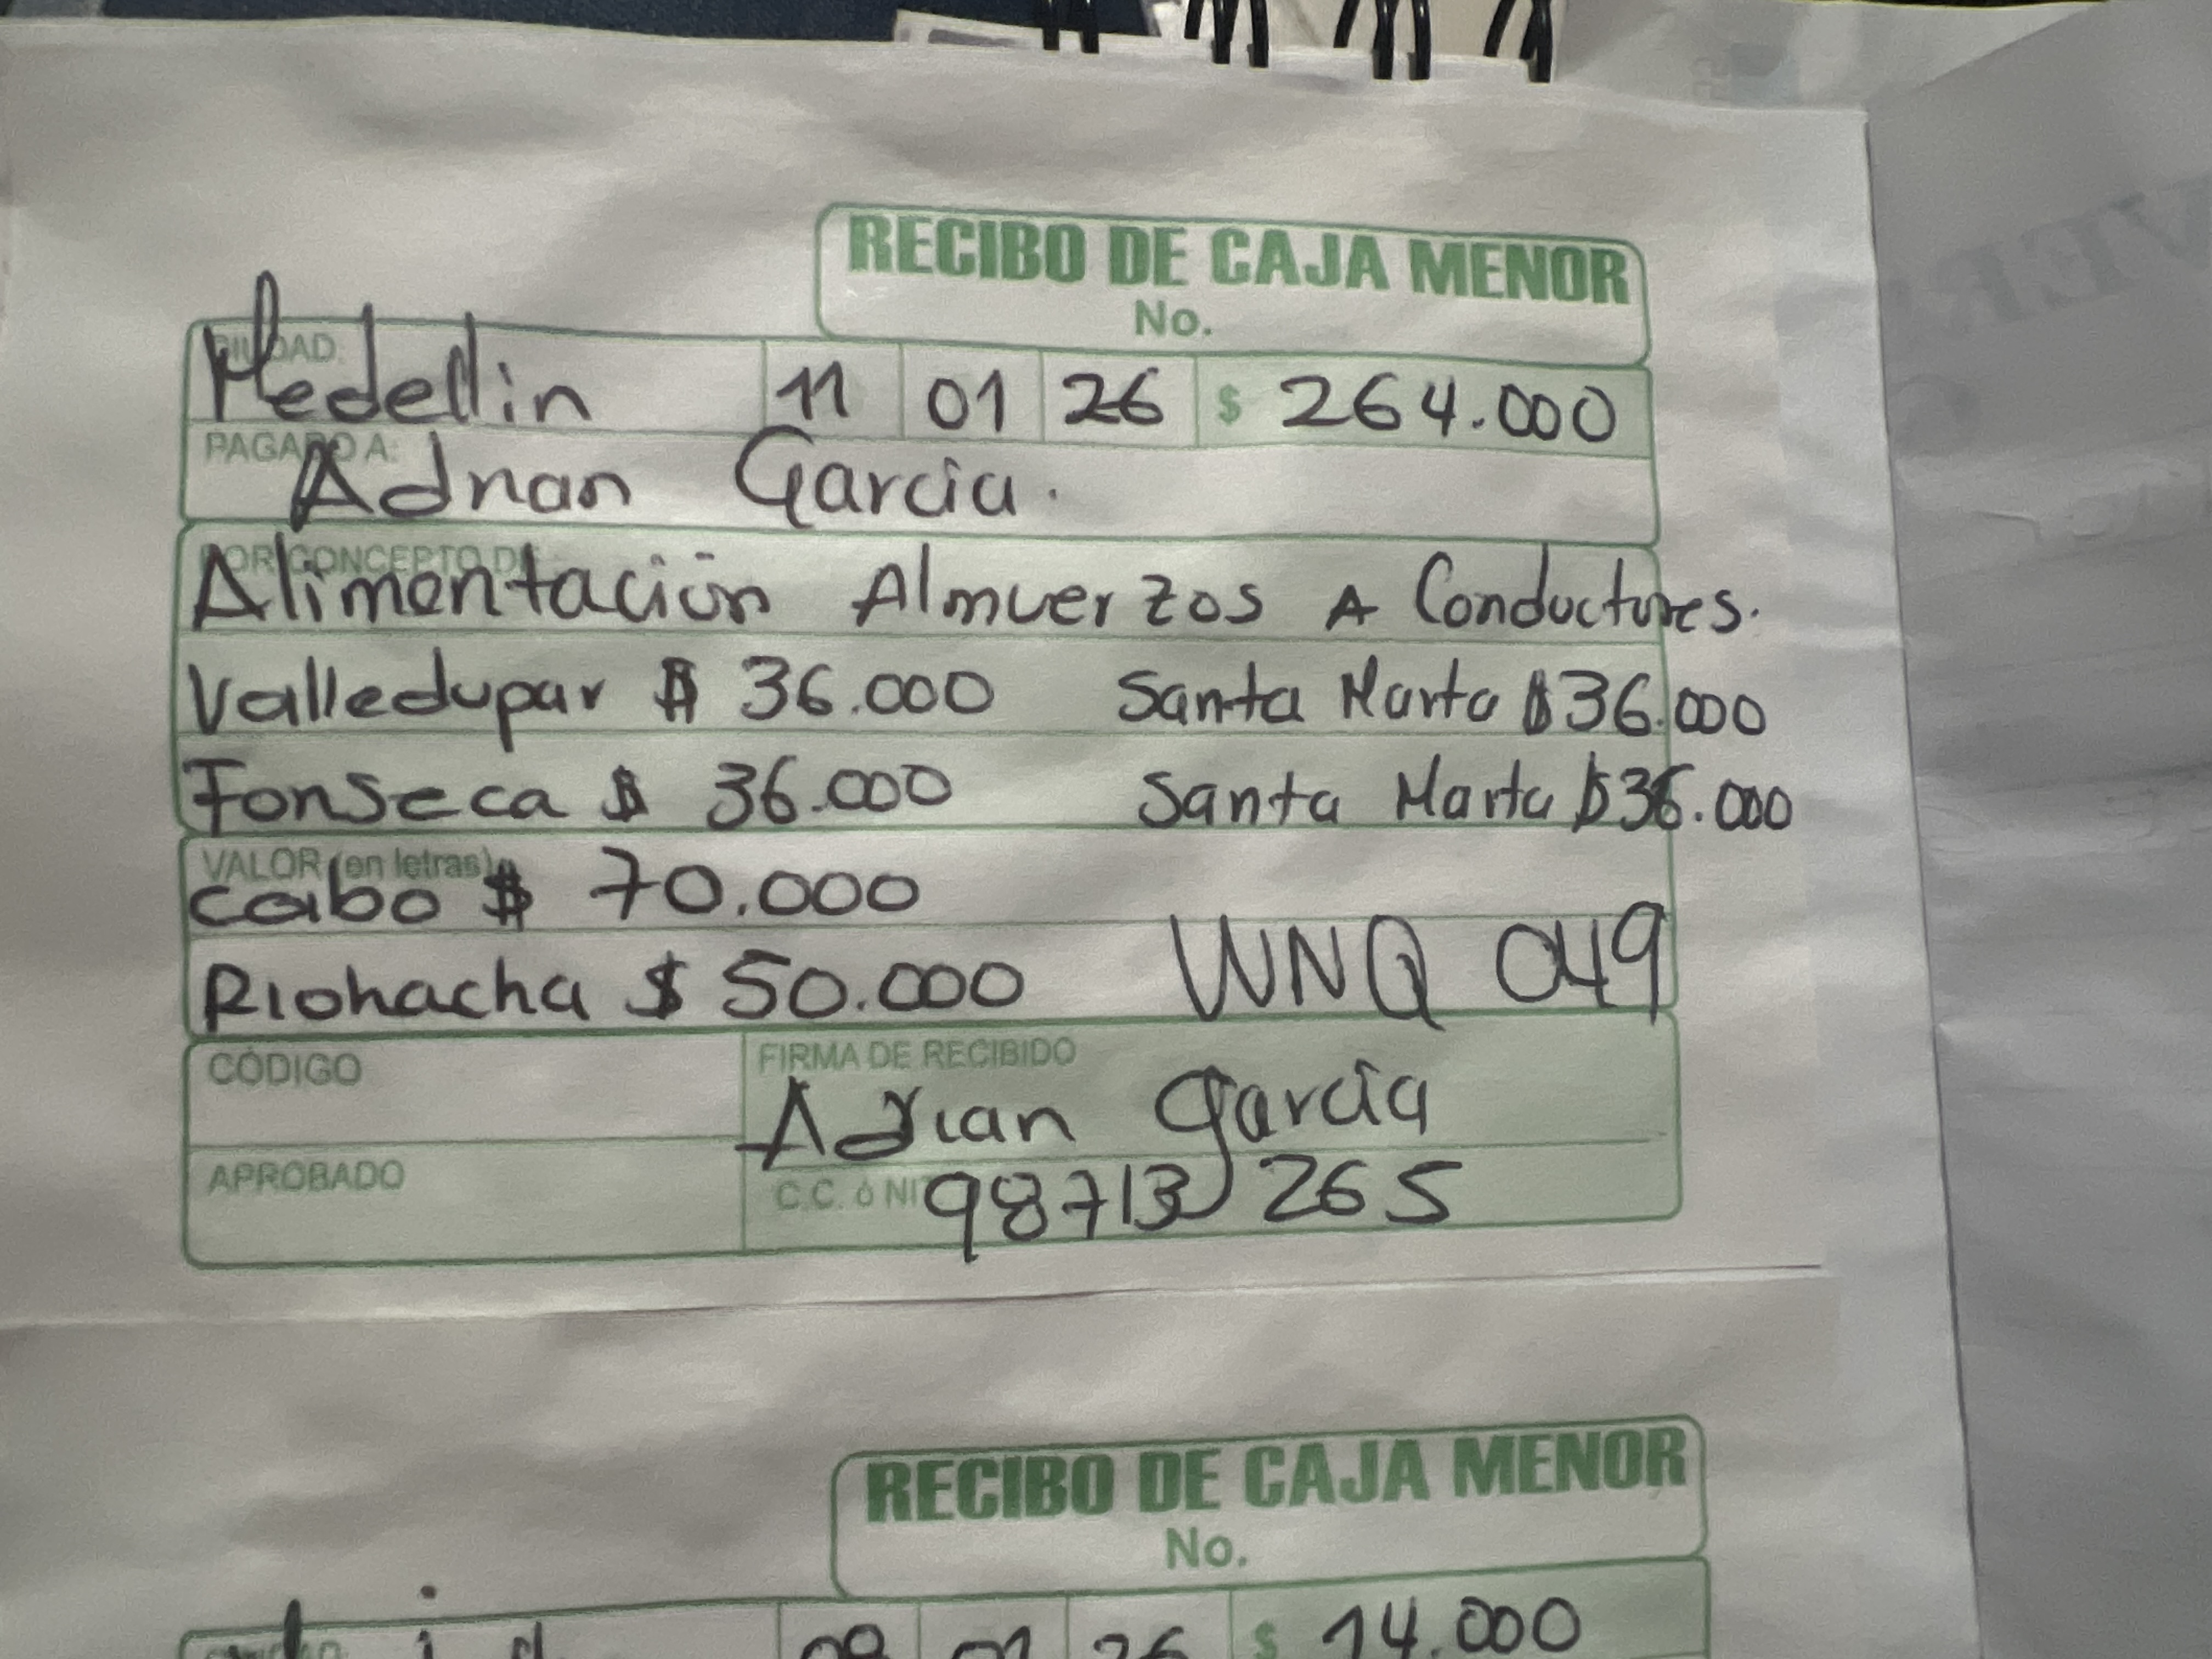 RECIBO DE CAJA MENOR
No.
CIUDAD: Medellin 11 01 26 $ 264.000
PAGADO A: Adrian Garcia.
POR CONCEPTO DE: Alimentación Almuerzos A Conductores.
Valledupar $ 36.000 Santa Marta $36.000
Fonseca $ 36.000 Santa Marta $36.000
VALOR (en letras) cabo $ 70.000
Riohacha $ 50.000 WNQ 049
CÓDIGO FIRMA DE RECIBIDO
Adrian Garcia
APROBADO C.C. ó NIT 98713265
RECIBO DE CAJA MENOR
No.
01 26 $ 14.000